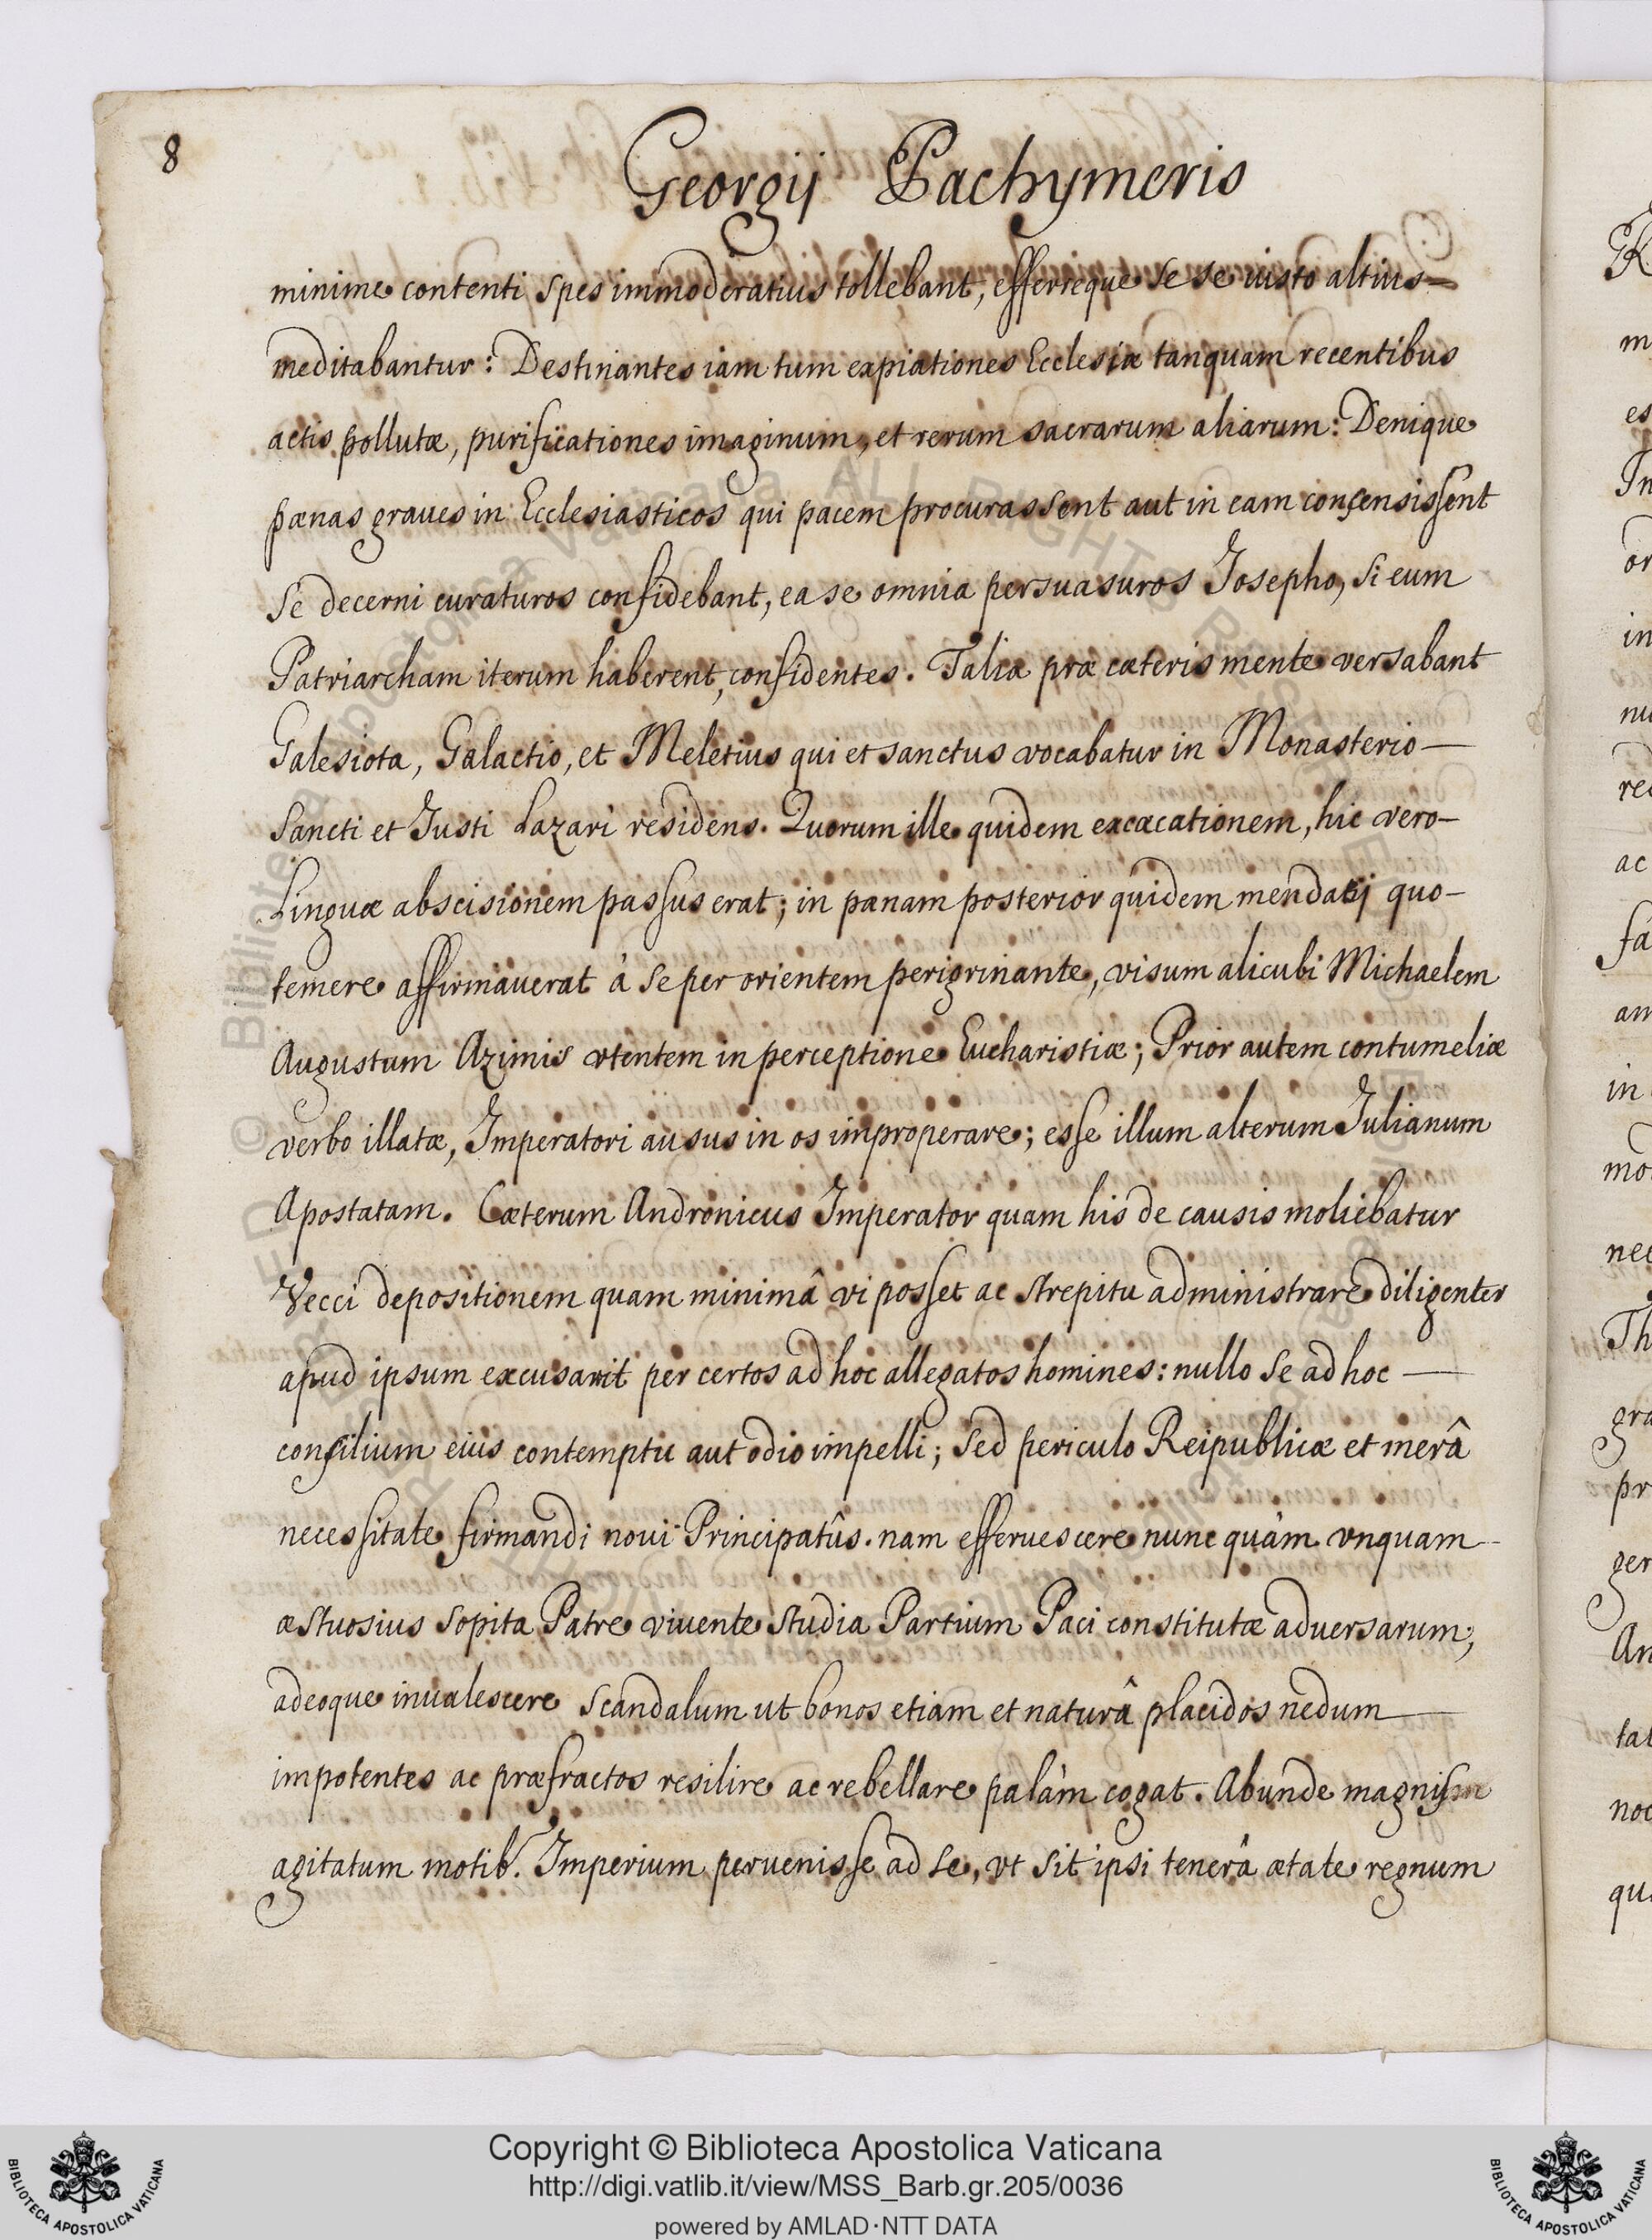 8
Georgij Pachymeris
minime contenti spes immoderatius tollebant, efferreque se se iusto altius-
meditabantur: Destinantes iam tum expiationes Ecclesiæ tanquam recentibus
actis pollutæ, purificationes imaginum, et rerum sacrarum aliarum: Denique
pænas graues in Ecclesiasticos qui pacem procurassent aut in eam consensissent
se decerni curaturos confidebant, ea se omnia persuasuros Josepho, si eum
Patriarcham iterum haberent, confidentes. Talia præ cæteris mente versabant
Galesiota, Galactio, et Meletius qui et sanctus vocabatur in Monasterio —
Sancti et Justi Lazari residens. Quorum ille quidem excæcationem, hic vero-
Linguæ abscisionem passus erat; in pænam posterior quidem mendacij quo-
temere affirmauerat à se per orientem perigrinante, visum alicubi Michaelem
Augustum Azimis vtentem in perceptione Eucharistiæ; Prior autem contumeliæ
verbo illatæ, Imperatori ausus in os improperare; esse illum alterum Julianum
Apostatam. Cæterum Andronicus Imperator quam his de causis moliebatur
Vecci depositionem quam minimâ vi posset ac strepitu administrare diligenter
apud ipsum excusavit per certos ad hoc allegatos homines: nullo se ad hoc —
consilium eius contemptu aut odio impelli; sed periculo Reipublicæ et merâ
necessitate firmandi noui Principatûs. nam efferuescere nunc quàm vnquam-
æstuosius sopita Patre viuente studia Partium Paci constitutæ aduersarum;
adeoque inualescere scandalum ut bonos etiam et naturâ placidos nedum —
impotentes ac præfractos resilire ac rebellare palàm cogat. Abunde magnis
agitatum motib. Imperium peruenisse ad se, vt sit ipsi tenerâ ætate regnum
Copyright © Biblioteca Apostolica Vaticana
http://digi.vatlib.it/view/MSS_Barb.gr.205/0036
powered by AMLAD·NTT DATA
BIBLIOTECA APOSTOLICA VATICANA
BIBLIOTECA APOSTOLICA VATICANA